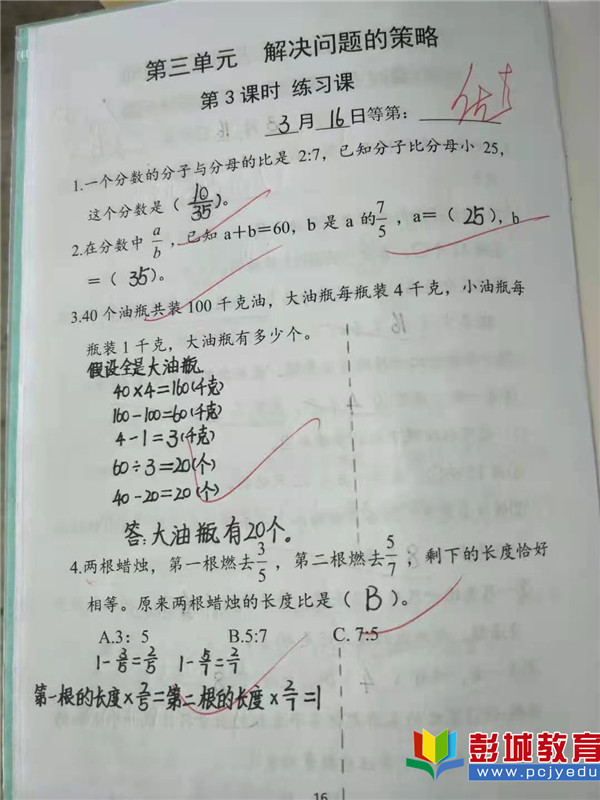 第三单元 解决问题的策略
第3课时 练习课
3月16日等第:
1.一个分数的分子与分母的比是 2:7，已知分子比分母小 25，
这个分数是（ 10/35 ）。
2.在分数中 a/b ，已知 a＋b＝60，b 是 a 的 7/5 ，a＝（ 25 ），b
＝（ 35 ）。
3.40 个油瓶共装 100 千克油，大油瓶每瓶装 4 千克，小油瓶每
瓶装 1 千克，大油瓶有多少个。
假设全是大油瓶
40×4=160(千克)
160-100=60(千克)
4-1=3(千克)
60÷3=20(个)
40-20=20(个)
答:大油瓶有20个。
4.两根蜡烛，第一根燃去 3/5 ，第二根燃去 5/7 ，剩下的长度恰好
相等。原来两根蜡烛的长度比是（ B ）。
A.3：5 B.5:7 C. 7:5
1-3/5=2/5 1-5/7=2/7
第一根的长度×2/5=第二根的长度×2/7=1
16
彭城教育
www.pcjyedu.com